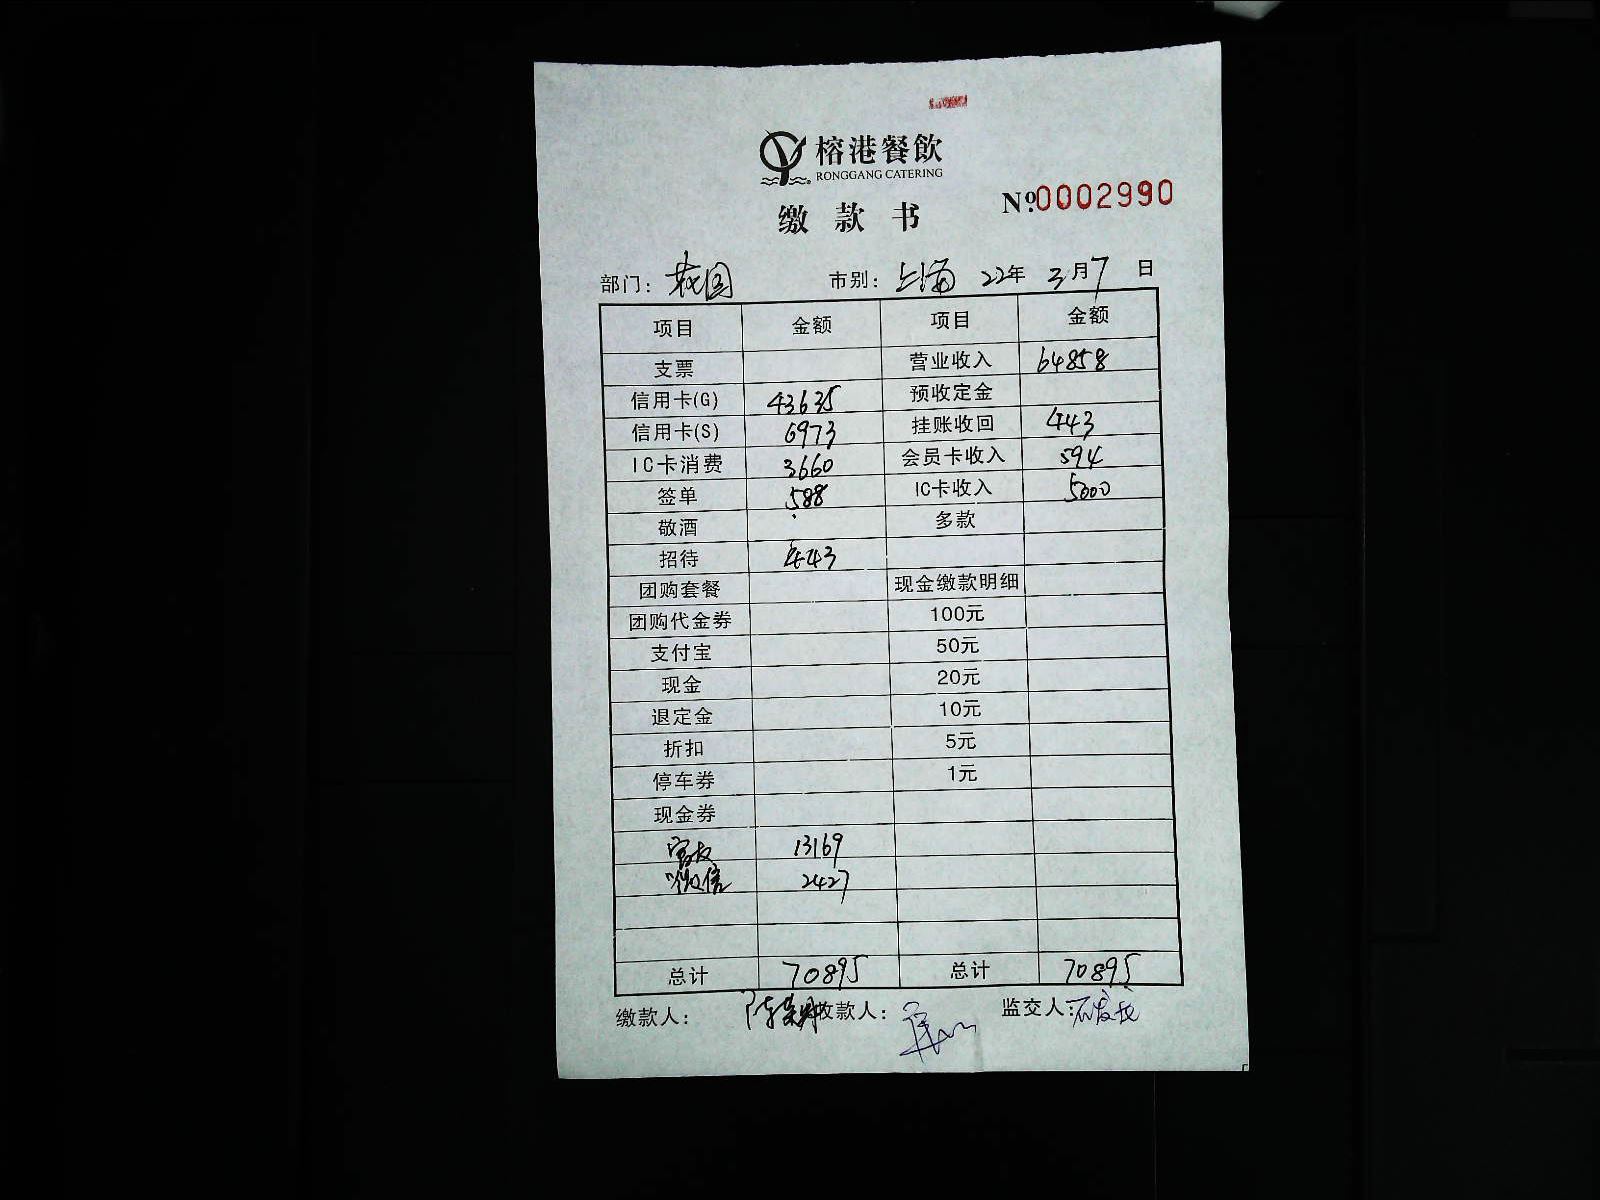 榕港餐飲
RONGGANG CATERING
缴款书 No.0002990
部门: 市别: 上海 22年 3月7日
项目 金额 项目 金额
支票 营业收入 64858
信用卡(G) 43635 预收定金
信用卡(S) 6973 挂账收回 443
IC卡消费 3660 会员卡收入 594
签单 588 IC卡收入 5000
敬酒 多款
招待 443
团购套餐 现金缴款明细
团购代金券 100元
支付宝 50元
现金 20元
退定金 10元
折扣 5元
停车券 1元
现金券
13169
微信 2427
总计 70895 总计 70895
缴款人: 收款人: 监交人: